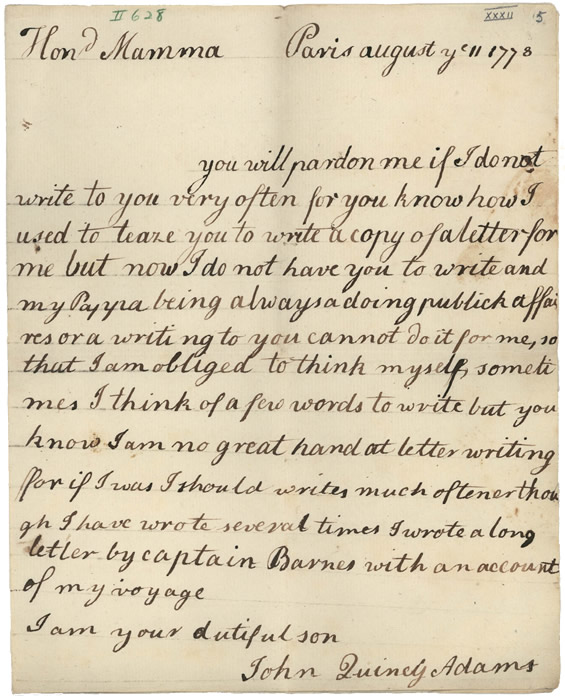 II 628
XXXII 5
Hond Mamma Paris august ye 11 1778
you will pardon me if I do not
write to you very often for you know how I
used to teaze you to write a copy of a letter for
me but now I do not have you to write and
my Pappa being always a doing publick affai
res or a writing to you cannot do it for me, so
that I am obliged to think myself, someti
mes I think of a few words to write but you
know I am no great hand at letter writing
for if I was I should writes much oftener thou
gh I have wrote several times I wrote a long
letter by captain Barnes with an account
of my voyage
I am your dutiful son
John Quincy Adams